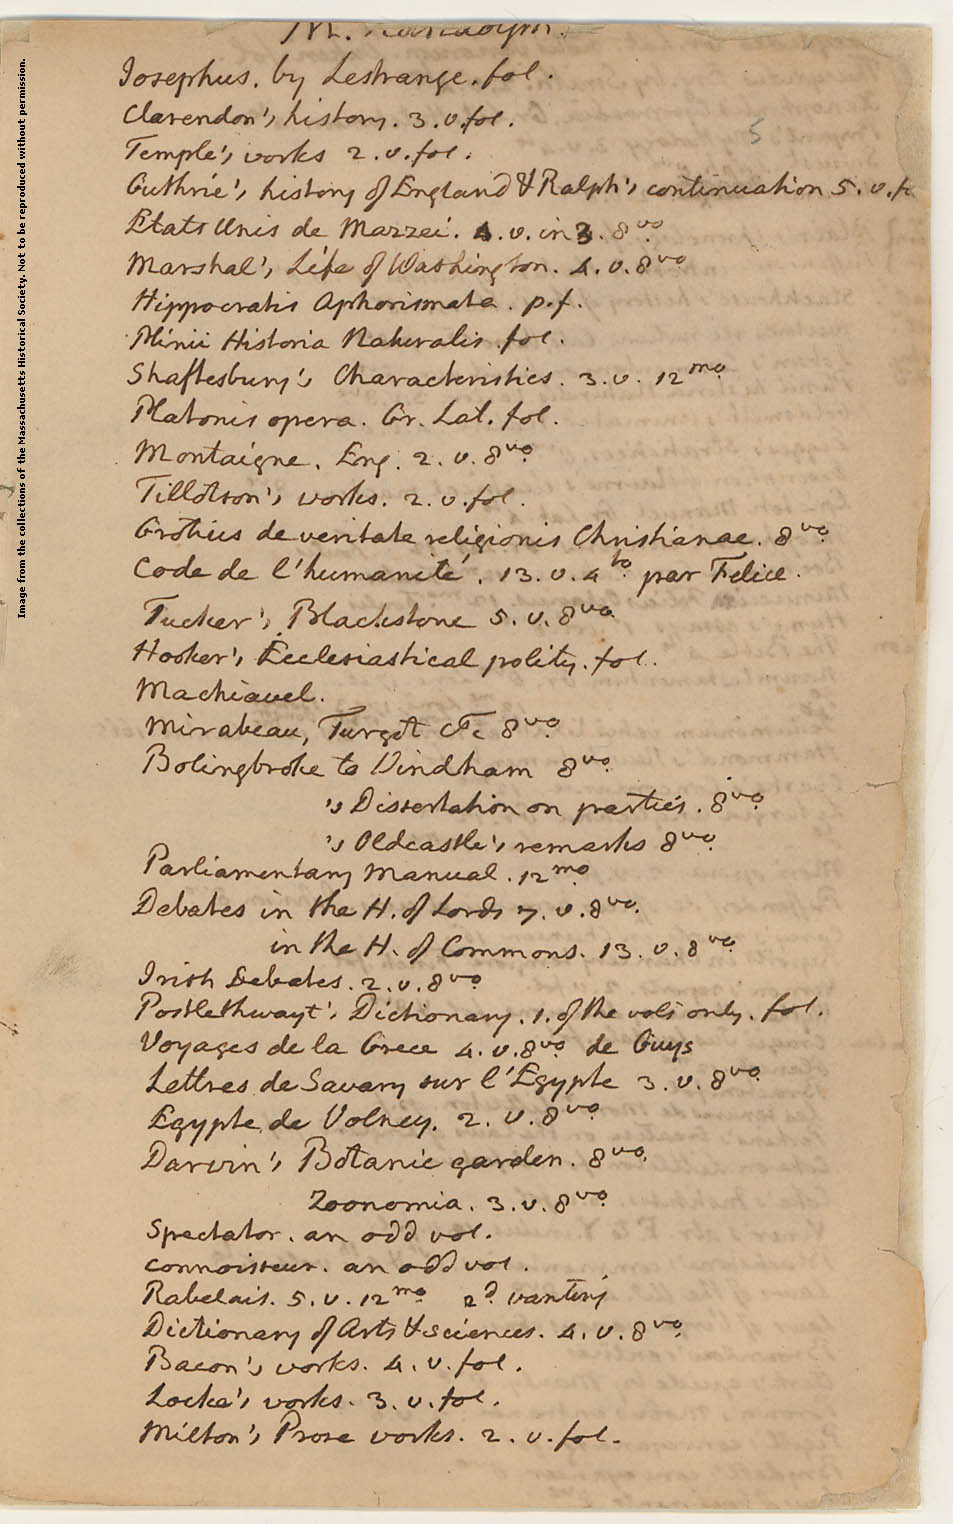 Image from the collections of the Massachusetts Historical Society. Not to be reproduced without permission.
5
Josephus. by Lestrange. fol.
Clarendon's history. 3. v. fol.
Temple's works 2. v. fol.
Guthrie's history of England & Ralph's continuation 5. v. fo
Etats Unis de Mazzei. 4. v. in 3. 8vo
Marshal's Life of Washington. 4. v. 8vo
Hippocratis Aphorismata. p. f.
Plinii Historia Naturalis. fol.
Shaftesbury's Characteristics. 3. v. 12mo
Platonis opera. Gr. Lat. fol.
Montaigne. Eng. 2. v. 8vo
Tillotson's works. 2. v. fol.
Grotius de veritate religionis Christianae. 8vo
Code de l'humanité. 13. v. 4to par Felice.
Tucker's Blackstone 5. v. 8vo
Hooker's Ecclesiastical polity. fol.
Machiavel.
Mirabeau, Turgot &c 8vo
Bolingbroke to Windham 8vo
's Dissertation on parties. 8vo
's Oldcastle's remarks 8vo
Parliamentary Manual. 12mo
Debates in the H. of Lords 7. v. 8vo
in the H. of Commons. 13. v. 8vo
Irish Debates. 2. v. 8vo
Postlethwayt's Dictionary. 1. of the vols only. fol.
Voyages de la Grece 4. v. 8vo de Guys
Lettres de Savary sur l'Egypte 3. v. 8vo
Egypte de Volney. 2. v. 8vo
Darwin's Botanic garden. 8vo
Zoonomia. 3. v. 8vo
Spectator. an odd vol.
Connoisseur. an odd vol.
Rabelais. 5. v. 12mo 2d wanting
Dictionary of Arts & sciences. 4. v. 8vo
Bacon's works. 4. v. fol.
Locke's works. 3. v. fol.
Milton's Prose works. 2. v. fol.